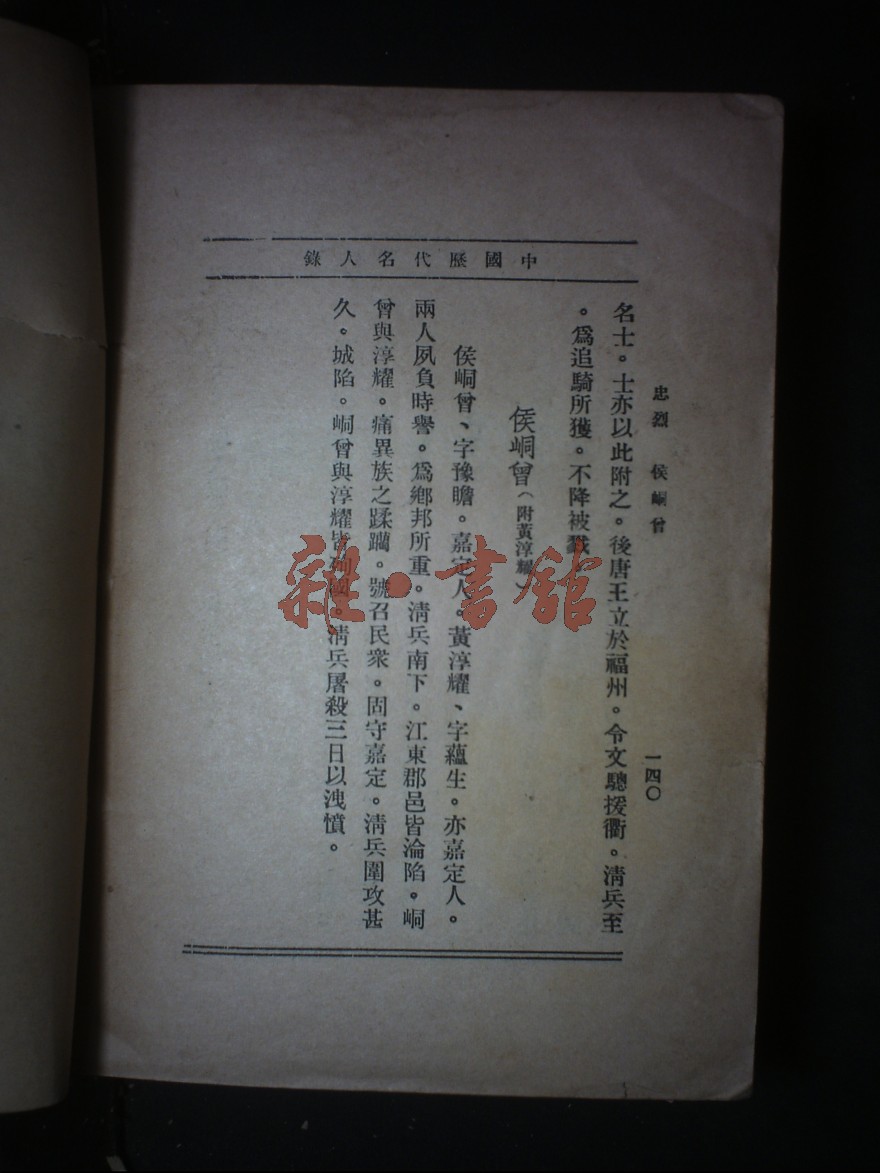 中國歷代名人錄
忠烈 侯峒曾 一四〇
名士。士亦以此附之。後唐王立於福州。令文驄援衢。清兵至
。爲追騎所獲。不降被戮。
侯峒曾（附黃淳耀）
侯峒曾、字豫瞻。嘉定人。黃淳耀、字蘊生。亦嘉定人。
兩人夙負時譽。爲鄉邦所重。清兵南下。江東郡邑皆淪陷。峒
曾與淳耀。痛異族之蹂躪。號召民衆。固守嘉定。清兵圍攻甚
久。城陷。峒曾與淳耀皆殉國。清兵屠殺三日以洩憤。
雜·書館